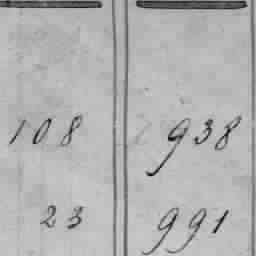 108 938
23 991